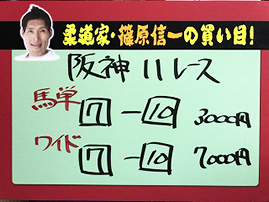 柔道家・篠原信一の買い目!
阪神11レース
馬単 7-10 3000円
ワイド 7-10 7000円